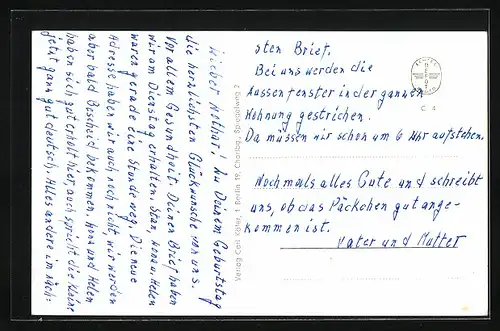 Lieber Lothar! Zu Deinem Geburtstag
die herzlichsten Glückwünsche von uns.
Vor allem Gesundheit. Deinen Brief haben
wir am Dienstag erhalten. Stan, Anna u. Helen
waren gerade eine Stunde weg. Die neue
Adresse haben wir auch noch nicht, wir werden
aber bald Bescheid bekommen. Anna und Helen
haben sich gut erholt hier, noch spricht die Kleine
jetzt ganz gut deutsch. Alles andere im näch-
sten Brief.
Bei uns werden die
Aussenfenster in der ganzen
Wohnung gestrichen.
Da müssen wir schon um 6 Uhr aufstehen.
Nochmals alles Gute und schreibt
uns, ob das Päckchen gut ange-
kommen ist.
Vater und Mutter
1 Berlin 19
C 4